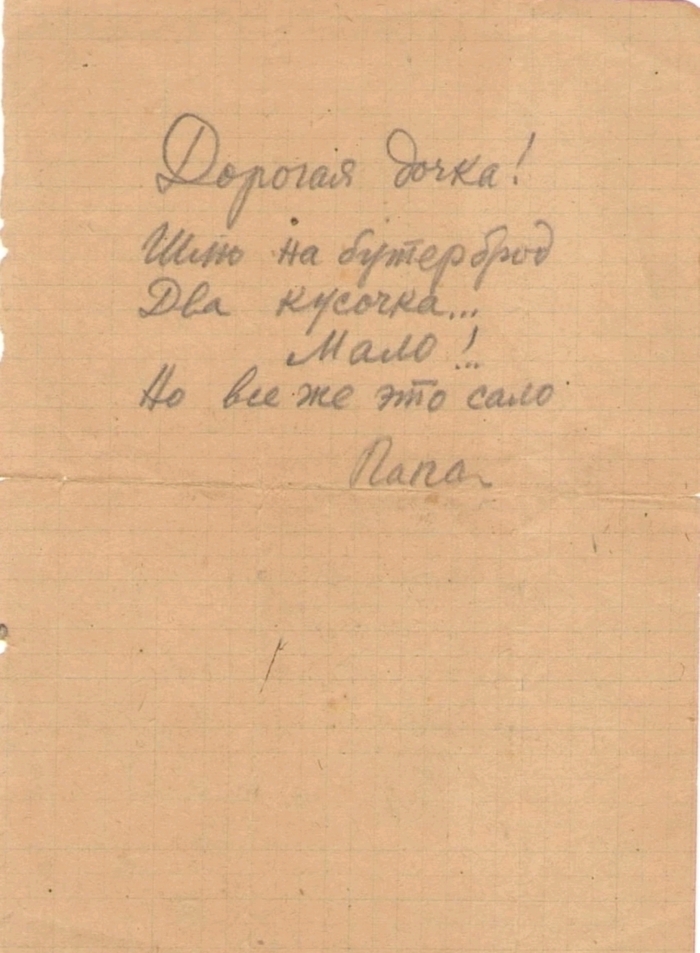 Дорогая дочка!
Шлю на бутерброд
Два кусочка...
Мало!..
Но все же это сало
Папа